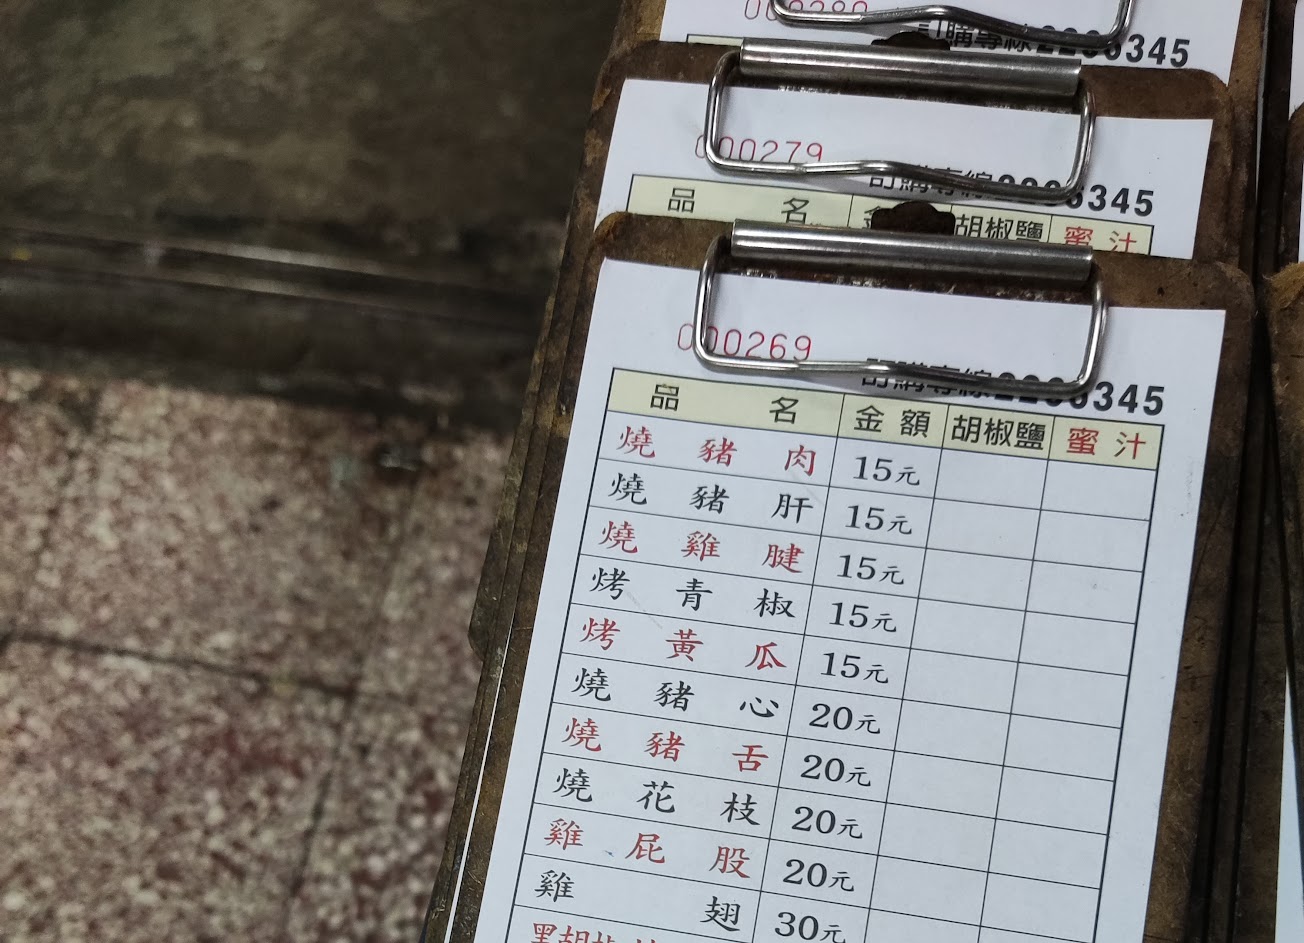 345
000279
345
品名 胡椒鹽 蜜汁
000269
345
品名 金額 胡椒鹽 蜜汁
燒豬肉 15元
燒豬肝 15元
燒雞腱 15元
烤青椒 15元
烤黃瓜 15元
燒豬心 20元
燒豬舌 20元
燒花枝 20元
雞屁股 20元
雞翅 30元